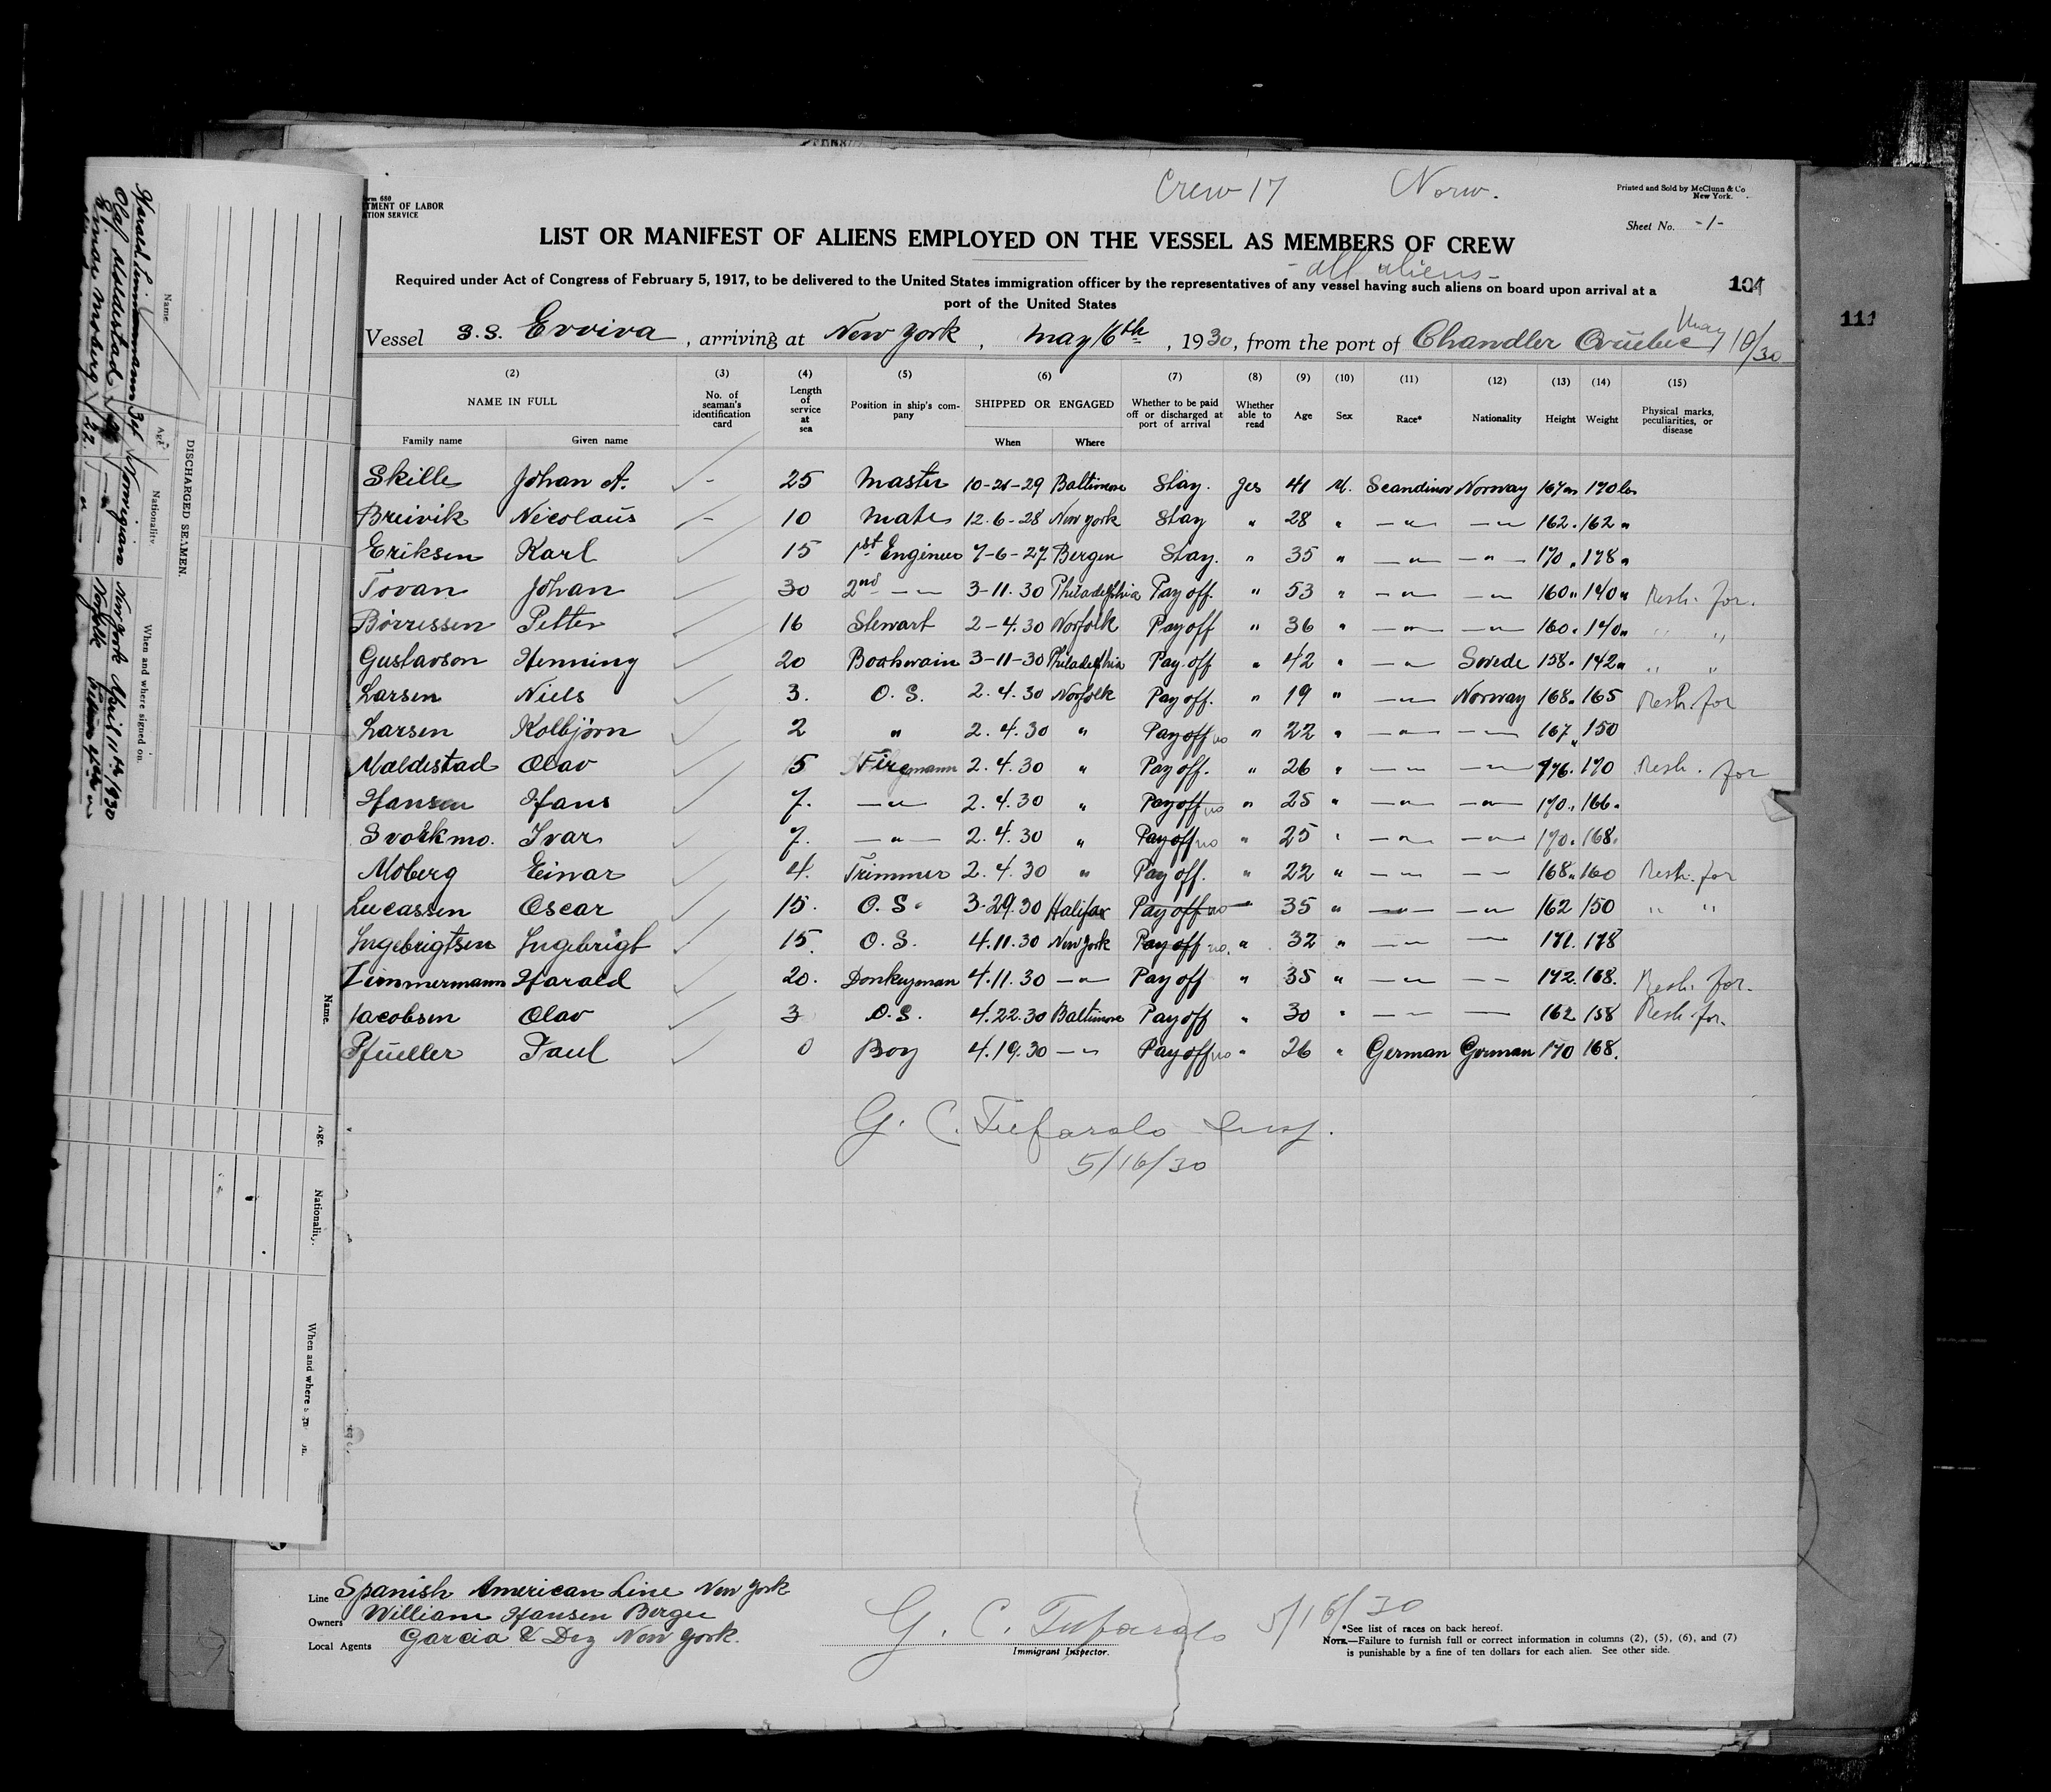 Crew 17 Norw.
Printed and Sold by McClunn & Co
New York.
Form 680
TMENT OF LABOR
TION SERVICE
Sheet No. -1-
LIST OR MANIFEST OF ALIENS EMPLOYED ON THE VESSEL AS MEMBERS OF CREW
- all aliens -
Required under Act of Congress of February 5, 1917, to be delivered to the United States immigration officer by the representatives of any vessel having such aliens on board upon arrival at a
port of the United States
111
Vessel S.S. Evviva, arriving at New York, May 16th, 1930, from the port of Chandler Quebec May 10/30
(2) (3) (4) (5) (6) (7) (8) (9) (10) (11) (12) (13) (14) (15)
NAME IN FULL No. of seaman's identification card Length of service at sea Position in ship's company SHIPPED OR ENGAGED Whether to be paid off or discharged at port of arrival Whether able to read Age Sex Race* Nationality Height Weight Physical marks, peculiarities, or disease
Family name Given name When Where
Skille Johan A. - 25 Master 10-21-29 Baltimore Stay. Yes 41 M. Scandinav Norway 167 cm 170 lbs
Breivik Nicolaus - 10 Mate 12.6-28 New York Stay " 28 " -"- -"- 162 " 162 "
Eriksen Karl 15 1st Engineer 7-6-27 Bergen Stay. " 35 " -"- -"- 170 " 178 "
Tovan Johan 30 2nd -"- 3-11.30 Philadelphia Pay off. " 53 " -"- -"- 160 " 140 " Resh. for.
Börressen Petter 16 Stewart 2-4.30 Norfolk Pay off " 36 " -"- -"- 160 " 140 " " "
Gustavson Henning 20 Boatswain 3-11-30 Philadelphia Pay off " 42 " -"- Swede 158 " 142 " " "
Larsen Niels 3. O. S. 2.4.30 Norfolk Pay off. " 19 " -"- Norway 168 " 165 Resh. for
Larsen Kolbjörn 2 " 2.4.30 " Pay off no " 22 " -"- -"- 167 " 150
Moldestad Olav 5 Firemann 2.4.30 " Pay off. " 26 " -"- -"- 176. 170 Resh. for
Hansen Hans 7. -"- 2.4.30 " Pay off no " 25 " -"- -"- 170 " 166.
Svorkmo. Ivar 7. -"- 2.4.30 " Pay off no " 25 " -"- -"- 170. 168.
Moberg Einar 4. Trimmer 2.4.30 " Pay off. " 22 " -"- -"- 168 " 160 Resh. for
Lucassen Oscar 15. O. S. 3-29.30 Halifax Pay off no " 35 " -"- -"- 162 150 " "
Ingebrigtsen Ingebrigt 15. O. S. 4.11.30 New York Pay off no. " 32 " -"- -"- 171. 178
Zimmermann Harald 20. Donkeyman 4.11.30 -"- Pay off " 35 " -"- -"- 172. 168. Resh. for.
Jacobsen Olav 3 O.S. 4.22.30 Baltimore Pay off " 30 " -"- -"- 162 158 Resh. for.
Pfüller Paul 0 Boy 4.19.30 -"- Pay off no " 26 " German German 170 168.
G. C. Tufarolo Insp.
5/16/30
Line Spanish American Line New York
Owners William Hansen Bergen
Local Agents Garcia & Diz New York.
G. C. Tufarolo 5/16/30
Immigrant Inspector.
*See list of races on back hereof.
NOTE.—Failure to furnish full or correct information in columns (2), (5), (6), and (7)
is punishable by a fine of ten dollars for each alien. See other side.
DISCHARGED SEAMEN.
Name Age Nationality When and where signed on.
Harald Zimmermann 35 Norwigian New York April 11th 1930
Olaf Moldestad -"- Norfolk
Einar Moberg 22 -"-
Name. Age. Nationality. When and where